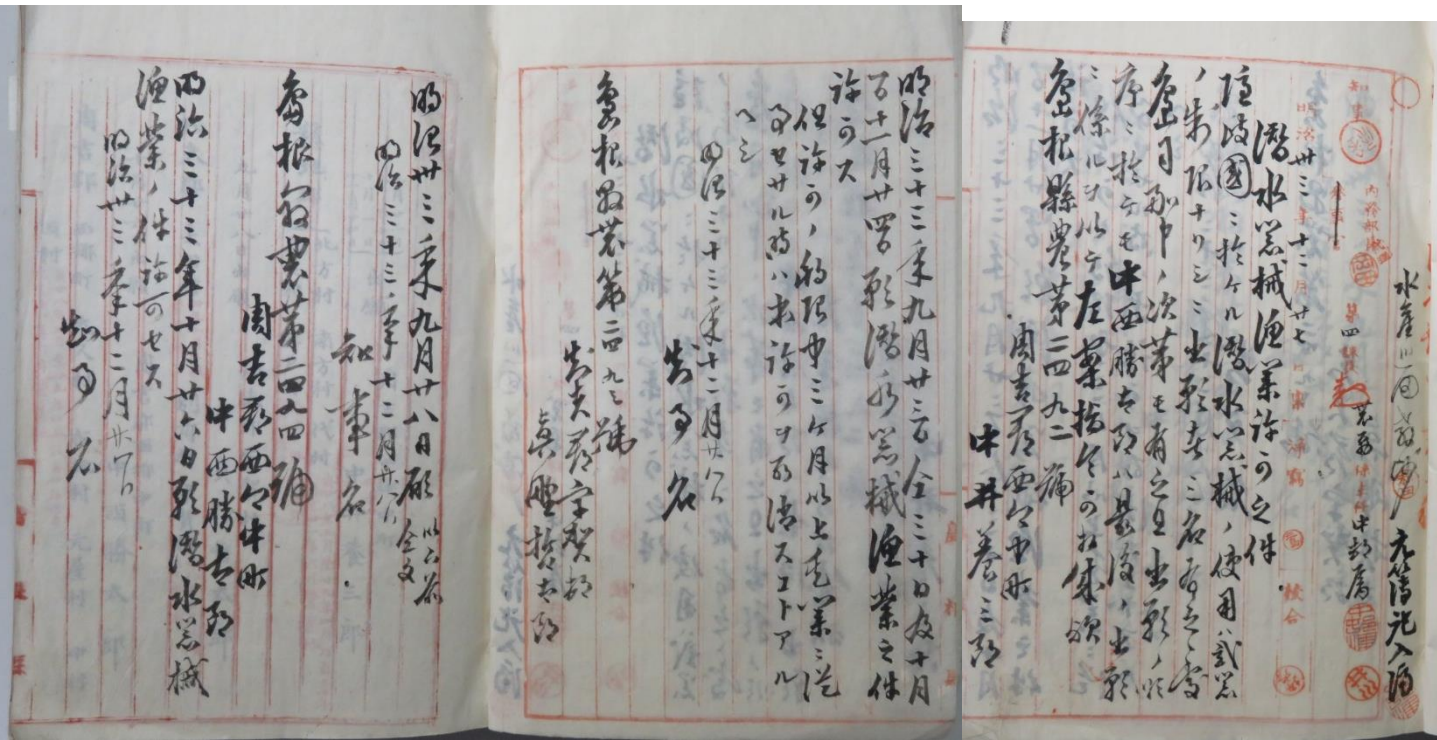 元簿記入済
農務 中村属
第四課長
明治卅三年十二月廿七日
浄寫
校合
潜水器械漁業許可之件
隠岐國ニ於ケル潜水器械ノ使用ハ弐器
ノ制限ナリシニ出願者三名有之処
島司副申ノ次第モ有之且出願ノ順
序ニ於テモ中西勝太郎ハ最後ノ出願
ニ係ルヲ以テ左案指令可相成哉
島根縣農第三四九二號
周吉郡西郷中町
中井養三郎
明治三十三年九月廿三日仝三十日及十月
三十一月廿四日願潜水器械漁業之件
許可ス
但許可ノ期限中三ケ月以上其業ニ従
事セサル時ハ本許可ヲ取消スコトアル
ヘシ
明治三十三年十二月廿八日
知事名
島根縣農第三四九三號
知夫郡宇賀村
真野哲太郎
明治卅三年九月廿八日願 以下前仝文
明治三十三年十二月廿八日
知事名
島根縣農第三四九四號
周吉郡西郷中町
中西勝太郎
明治三十三年十月廿六日願潜水器械
漁業ノ件許可セス
明治卅三年十二月廿八日
知事名